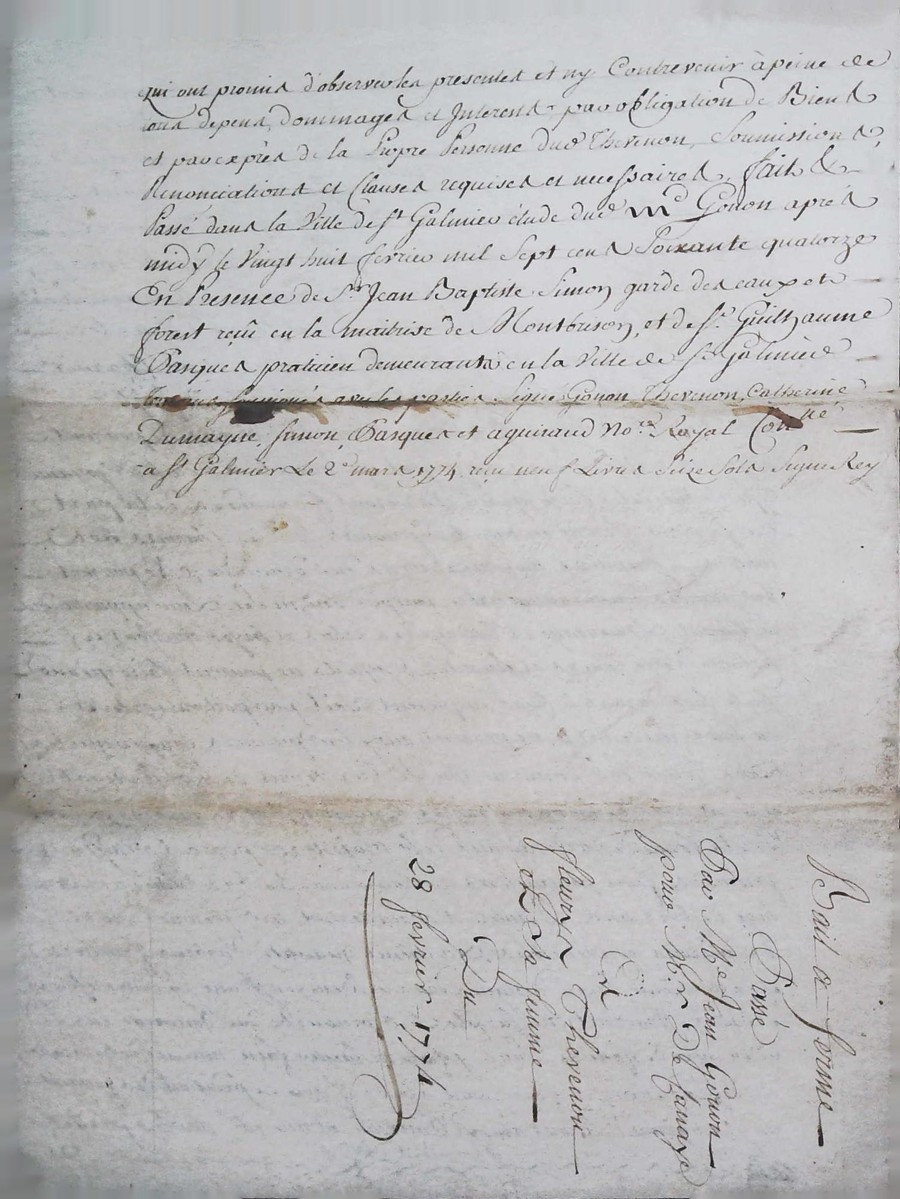 qui ont promis d'observer les presentes et ny Contrevenir à peine de
tous depens, dommages et Interests par obligation de Biens
et par exprès de la Propre Personne dud Thevenon, Soumissions,
Renonciations et Clauses requises et necessaires, fait &
Passé dans la Ville de St Galmier étude dud md Gonon après
midy le Vingt huit fevrier mil Sept cent Soixante quatorze
En Presence de Sr Jean Baptiste Simon garde des eaux et
forest reçu en la maitrise de Montbrison, et de Sr Guilhaume
Pasques praticien demeurants en la Ville de St Galmier
soussignés avec les parties Signé Gonon, Thevenon, Catherine
Dumagne, Simon, Pasques et aguiraud Nore Royal Conllé
a St Galmier Le 2e mars 1774 reçu neuf Livres Seize Sols Signé Rey
Bail a ferme
Passé
Par Me Jean Gonon
pour Mr
à
fleury Thevenon
et Sa femme
Du
28 fevrier 1774